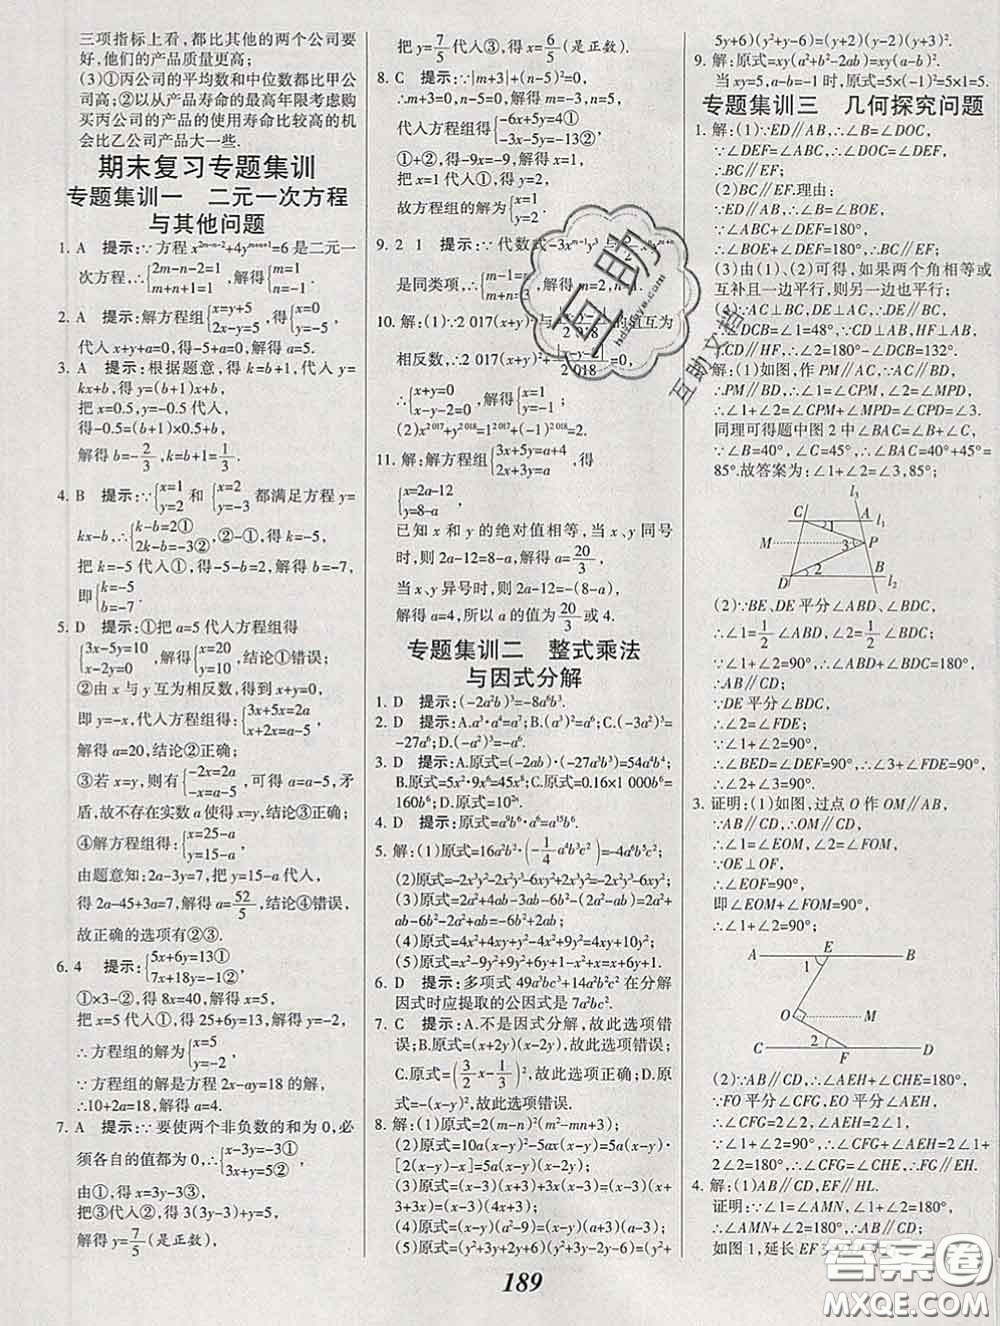 三项指标上看,都比其他的两个公司要
好,他们的产品质量更高;
(3)①丙公司的平均数和中位数都比甲公
司高;②以从产品寿命的最高年限考虑购
买丙公司的产品的使用寿命比较高的机
会比乙公司产品大一些.
期末复习专题集训
专题集训一 二元一次方程
与其他问题
1. A 提示:∵方程x^{2m-n-2}+4y^{m+n+1}=6是二元一
次方程,∴{2m-n-2=1 m+n+1=1,解得{m=1 n=-1.
2. A 提示:解方程组{x=y+5 2x-y=5,得{x=0 y=-5.
代入x+y+a=0,得0-5+a=0,解得a=5.
3. A 提示:根据题意,得k=b+1,代入y=
kx+b,得y=(b+1)x+b,
把x=0.5,y=-0.5代入,
得-0.5=(b+1)×0.5+b,
解得b=-2/3,k=b+1=1/3.
4. B 提示:∵{x=1 y=2和{x=2 y=-3都满足方程y=
kx-b,∴{k-b=2① 2k-b=-3②,②-①,得k=-5,
把k=-5代入①,得-5-b=2,解得b=-7,
即{k=-5 b=-7.
5. D 提示:①把a=5代入方程组得
{3x-5y=10 x-2y=0,解得{x=20 y=10,结论①错误;
②由x与y互为相反数,得得到x+y=0,
即y=-x,代入方程组得:{3x+5x=2a x+2x=a-5,
解得a=20,结论②正确;
③若x=y,则有{-2x=2a -x=a-5,可得a=a-5,矛
盾,故不存在实数a使得x=y,结论③正确;
④解方程组得:{x=25-a y=15-a,
由题意知:2a-3y=7,把y=15-a代入得:
得2a-45+3a=7,解得a=52/5,结论④错误,
故正确的选项有②③.
6. 4 提示:{5x+6y=13① 7x+18y=-1②,
①×3-②,得8x=40,解得x=5,
把x=5代入①,得25+6y=13,解得y=-2,
∴方程组的解为{x=5 y=-2,
∵方程组的解是方程2x-ay=18的解,
∴10+2a=18,解得a=4.
7. A 提示:∵要使两个非负数的和为0,必
须各自的值都为0,∴{x-3y=-3① 3x+y=5②,
由①,得x=3y-3③,
把③代入②,得3(3y-3)+y=5,
解得y=7/5(是正数),
把y=7/5代入③,得x=6/5(是正数).
8. C 提示:∵|m+3|+(n-5)²=0,
∴m+3=0,n-5=0,解得m=-3,n=5,
代入方程组得{-6x+5y=4① -3x-5y=-13②,
①+②,得-9x=-9,解得x=1,
把x=1代入①,得y=2,
故方程组的解为{x=1 y=2.
9. 2 1 提示:∵代数式-3x^{m-1}y³与
是同类项,∴{m-1=
10. 解:(1)∵2 017(x+y)²与 的值互为
相反数,∴2 017(x+y)²+ =0,
∴{x+y=0 x-y-2=0,解得{x=1 y=-1.
(2)x^{2 017}+y^{2 018}=1^{2 017}+(-1)^{2 018}=2.
11. 解:解方程组{3x+5y=a+4 2x+3y=a,得
{x=2a-12 y=8-a,
已知x和y的绝对值相等,当x、y同号
时,则2a-12=8-a,解得a=20/3,
当x、y异号时,则2a-12=-(8-a),
解得a=4,所以a的值为20/3或4.
专题集训二 整式乘法
与因式分解
1. D 提示:(-2a²b)³=-8a⁶b³.
2. D 提示:A.a³·a⁴=a⁷;B.(a³)²=a⁶;C.(-3a²)³=
-27a⁶;D.(-a²)³=-a⁶.
3. D 提示:A.原式=(-2ab)·(-27a³b³)=54a⁴b⁴;
B.原式=5x²·9x⁶=45x⁸;C.原式=0.16×1 000b⁶=
160b⁶;D.原式=10^{2n}.
4. D 提示:原式=a⁹b⁶·a⁶=a¹⁵b⁶.
5. 解:(1)原式=16a²b²·(-1/4 a⁴b³c²)=-4a⁶b⁵c²;
(2)原式=-2x³y²-2x²y³-2x³y²+2x²y³=-4x³y²;
(3)原式=2a²+4ab-3ab-6b²-2ab+ab=2a²+
ab-6b²-2a²+ab=-6b²+2ab;
(4)原式=4x²+4xy+y²-4x²+9y²=4xy+10y²;
(5)原式=x²-9y²-x²+9y²+x+6y+1=x+6y+1.
6. D 提示:多项式49a³bc³+14a²b²c²在分解
因式时应提取的公因式是7a²bc².
7. C 提示:A.不是因式分解,故此选项错
误;B.原式=(x+2y)(x-2y),故此选项错误;
C.原式=(3/2 x-1/3)²,故此选项正确;D.原式
=-(x-y)²,故此选项错误.
8. 解:(1)原式=2(m-n)²(m²-mn+3);
(2)原式=10a(x-y)²-5ax(x-y)=5a(x-y)·
[2(x-y)-x]=5a(x-y)(x-2y);
(3)原式=(x-3)(x+3)+3x(x-3)=(x-3)(x+
3+3x)=(x-3)(4x+3);
(4)原式=(x-y)(a²-9)=(x-y)(a+3)(a-3);
(5)原式=(y²+3y+2y+6)(y²+3y-2y-6)=(y²+
5y+6)(y²+y-6)=(y+2)(y-2)(y+3)².
9. 解:原式=xy(a²+b²-2ab)=xy(a-b)².
当xy=5,a-b=-1时,原式=5×(-1)²=5×1=5.
专题集训三 几何探究问题
1. 解:(1)∵ED∥AB,∴∠B=∠DOC,
∵∠DEF=∠ABC,∴∠DEF=∠DOC,
∴BC∥EF;
(2)BC∥EF.理由:
∵ED∥AB,∴∠B=∠BOE,
∵∠ABC+∠DEF=180°,
∴∠BOE+∠DEF=180°,∴BC∥EF;
(3)由(1)、(2)可得,如果两个角相等或
互补且一边平行,则另一边也平行;
(4)∵AC⊥BC,DE⊥AC,∴DE∥BC,
∴∠DCB=∠1=48°,∵CD⊥AB,HF⊥AB,
∴CD∥HF,∴∠2=180°-∠DCB=132°.
2. 解:(1)如图,作PM∥AC,∵AC∥BD,
∴PM∥BD,∴∠1=∠CPM,∠2=∠MPD,
∴∠1+∠2=∠CPM+∠MPD=∠CPD=∠3.
同理可得题中图2中∠BAC=∠B+∠C,
∵∠B=40°,∠C=45°,∴∠BAC=40°+45°=
85°.故答案为:∠1+∠2=∠3,85°;
l₃
C 1 A l₁
M 3 P
2
D B l₂
(2)∵BE、DE平分∠ABD、∠BDC,
∴∠1=1/2∠ABD,∠2=1/2∠BDC,
∵∠1+∠2=90°,∴∠ABD+∠BDC=180°,
∴AB∥CD;
∵DE平分∠BDC,
∴∠2=∠FDE;
∵∠1+∠2=90°,
∴∠BED=∠DEF=90°,∴∠3+∠FDE=90°,
∴∠2+∠3=90°.
3. 证明:(1)如图,过点O作OM∥AB,
∵AB∥CD,∴OM∥CD,
∴∠1=∠EOM,∠2=∠FOM,
∵OE⊥OF,
∴∠EOF=90°,
即∠EOM+∠FOM=90°,
∴∠1+∠2=90°;
A E B
1
O M
2
C F D
(2)∵AB∥CD,∴∠AEH+∠CHE=180°,
∵FO平分∠CFG,EO平分∠AEH,
∴∠CFG=2∠2,∠AEH=2∠1,
∵∠1+∠2=90°,∴∠CFG+∠AEH=2∠1+
2∠2=180°,∴∠CFG=∠CHE,∴CE∥FG.
4. 解:(1)AB∥CD,EF∥HL.
证明:∵∠1=∠AMN,∠1+∠2=180°,
∴∠AMN+∠2=180°,∴AB∥CD;
如图1,延长EF
189
互助
互助文皆
答案圈
MXQE.COM